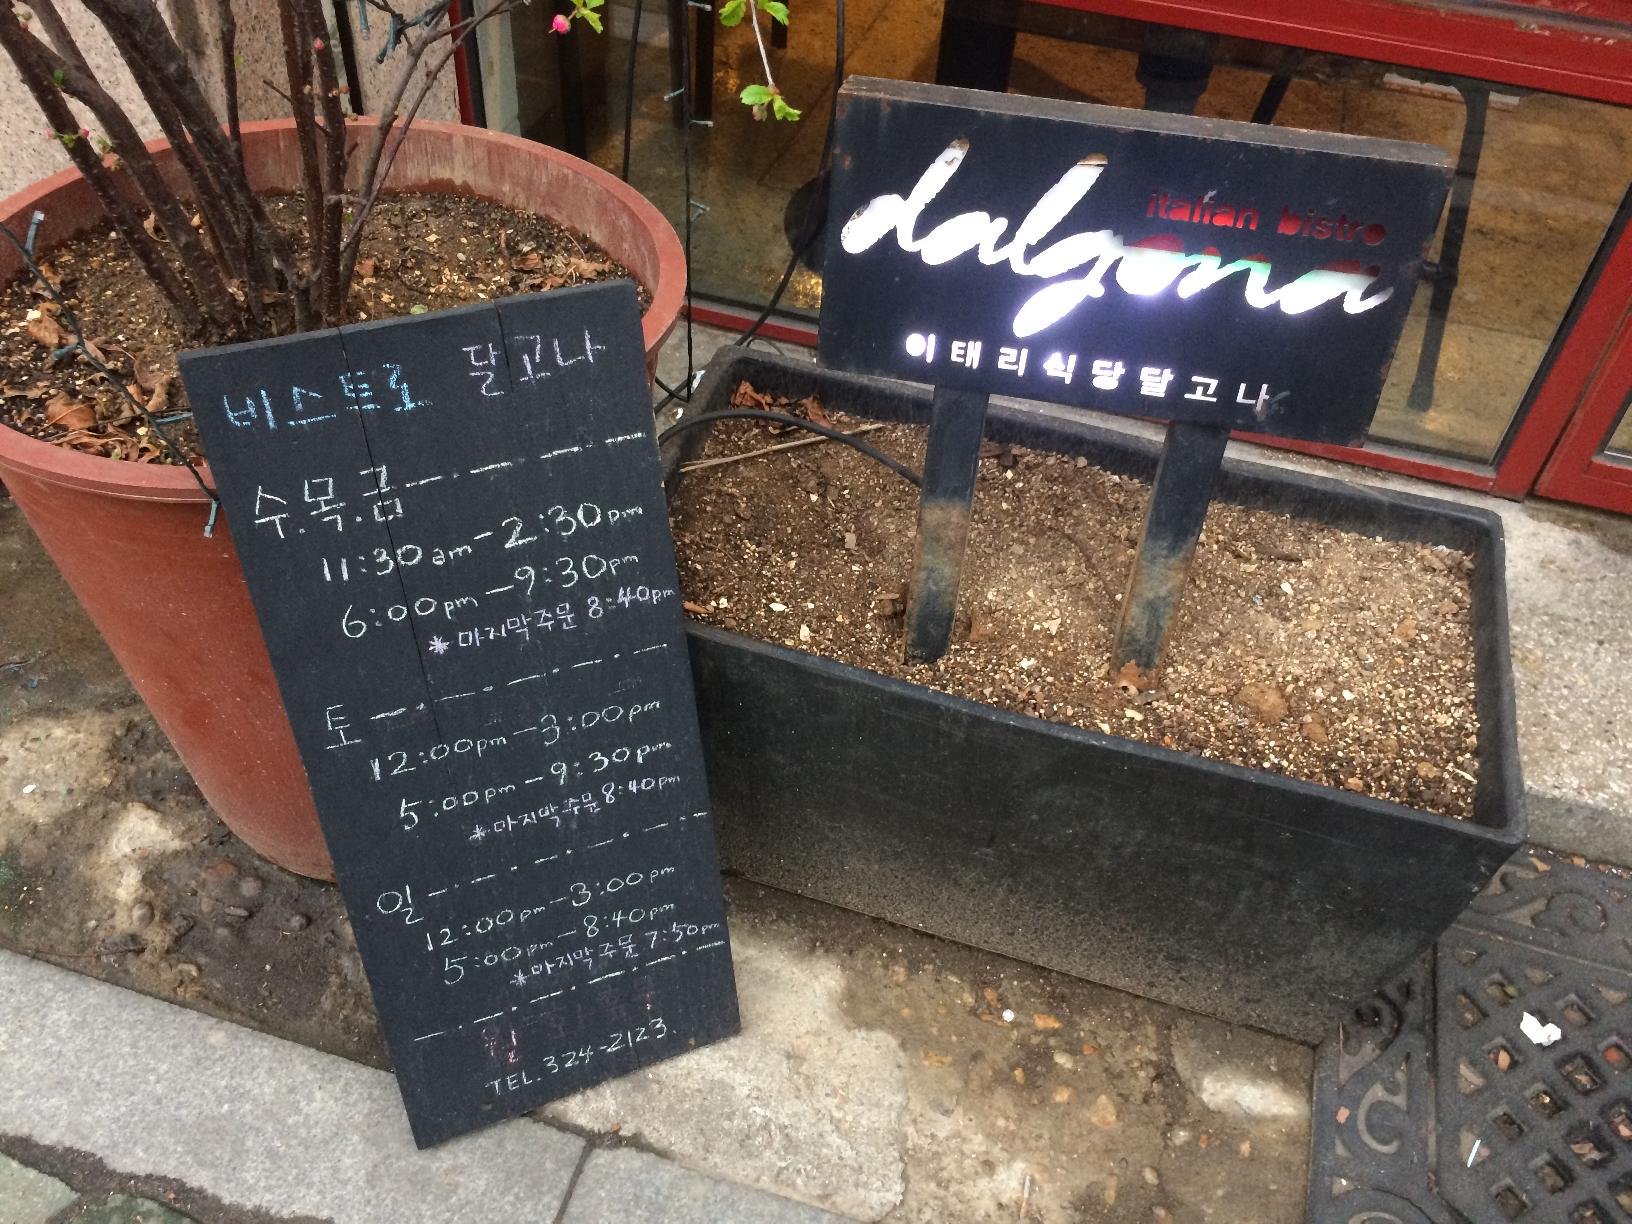 비스트로 달고나
수.목.금
11:30am-2:30pm
6:00pm-9:30pm
*마지막주문 8:40pm
토
12:00pm-3:00pm
5:00pm-9:30pm
*마지막주문 8:40pm
일
12:00pm-3:00pm
5:00pm-8:40pm
*마지막주문 7:50pm
TEL. 324-2123.
italian bistro
dalgona
이태리식당달고나